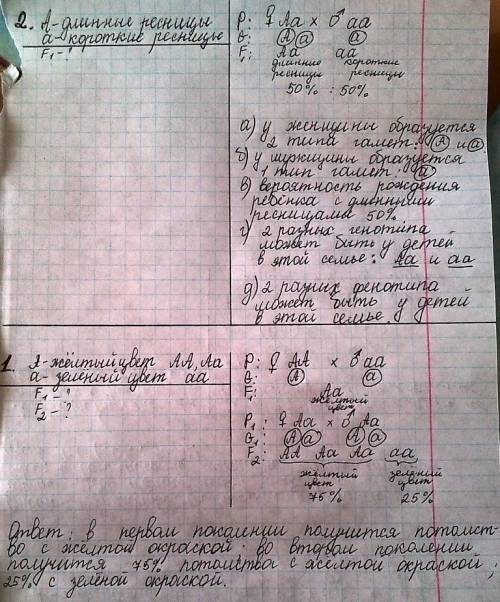 2. А-длинные ресницы
а-короткие ресницы
F₁-?
P: ♀ Аа × ♂ аа
G: А а а
F₁: Аа аа
длинные короткие
ресницы ресницы
50% : 50%
а) у женщины образуется
2 типа гамет: А и а
б) у мужчины образуется
1 тип гамет: а
в) вероятность рождения
ребёнка с длинными
ресницами 50%.
г) 2 разных генотипа
может быть у детей
в этой семье: Аа и аа
д) 2 разных фенотипа
может быть у детей
в этой семье.
1. А-жёлтый цвет АА, Аа
а-зелёный цвет аа
F₁-?
F₂-?
P: ♀ АА × ♂ аа
G: А а
F₁: Аа
жёлтый
цвет
P₁: ♀ Аа × ♂ Аа
G₁: А а А а
F₂: АА Аа Аа аа
жёлтый зелёный
цвет цвет
75% 25%
Ответ: в первом поколении получится потомст-
во с жёлтой окраской; во втором поколении
получится 75% потомства с жёлтой окраской;
25% с зелёной окраской.